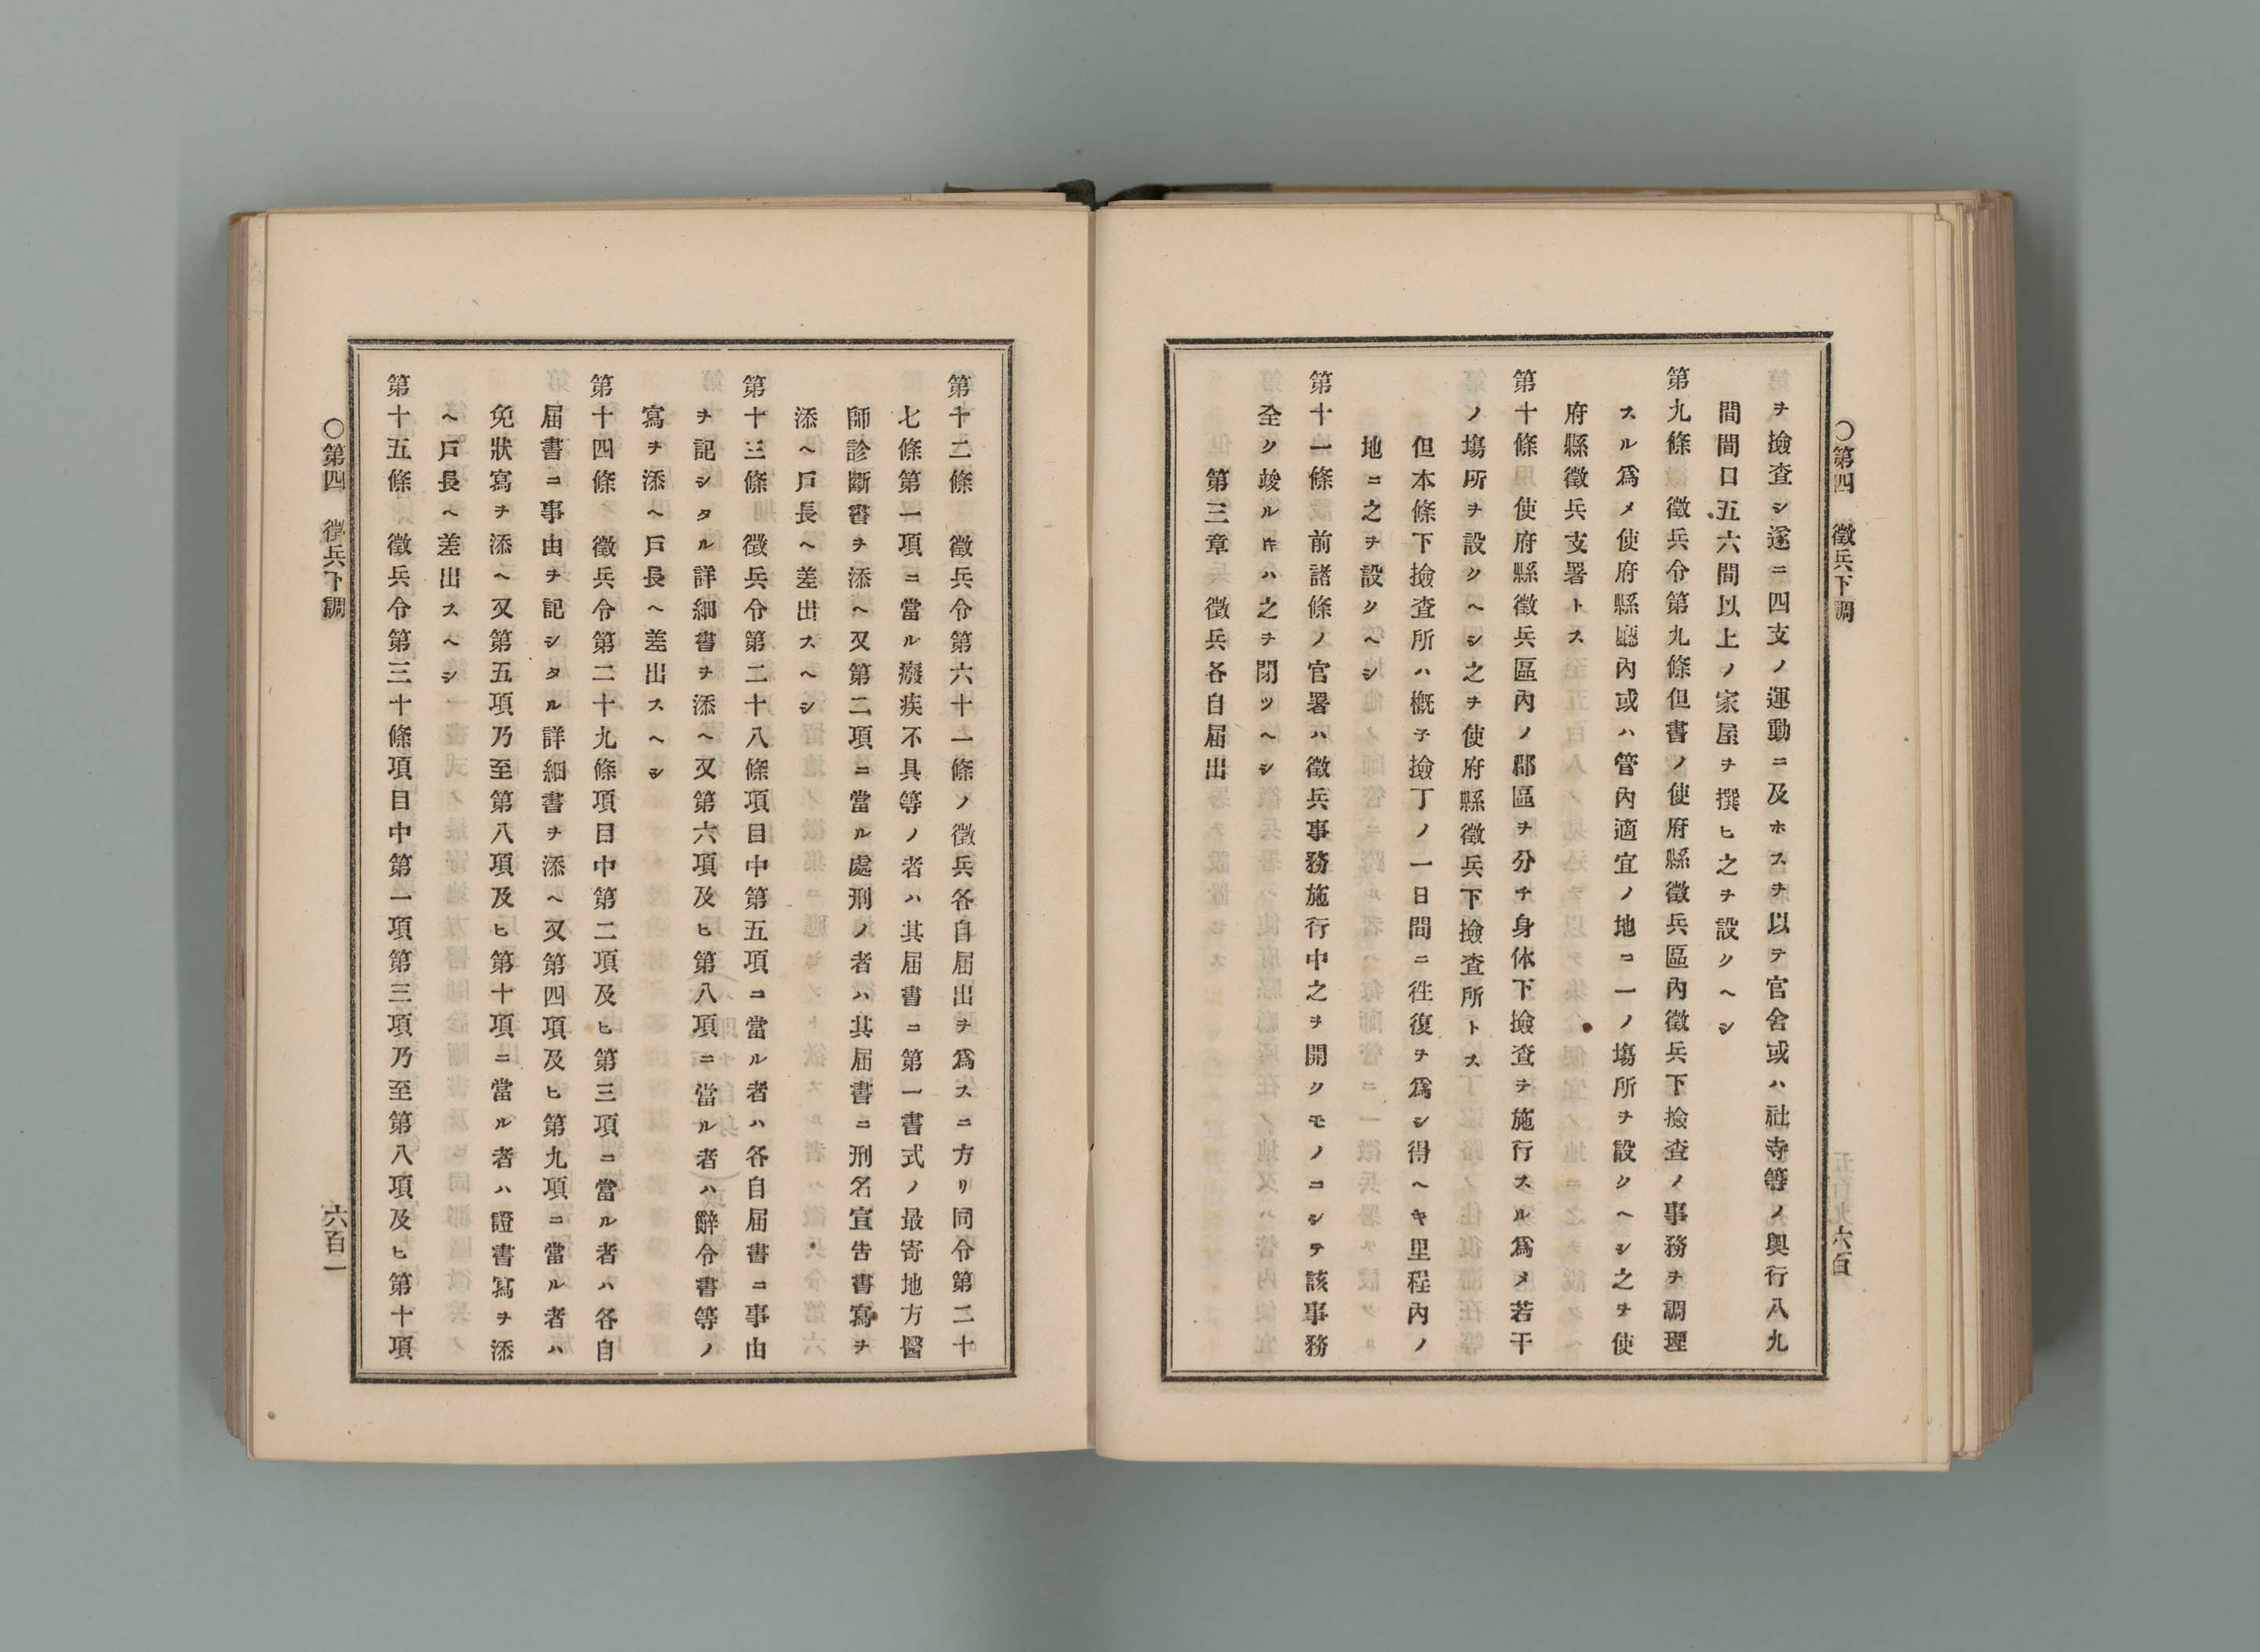 〇第四　徵兵下調
六百
ヲ撿査シ遂ニ四支ノ運動ニ及ホスヲ以テ官舍或ハ社寺等ノ奧行八九
間間口五六間以上ノ家屋ヲ撰ヒ之ヲ設クヘシ
第九條　徵兵令第九條但書ノ使府縣徵兵區內徵兵下撿査ノ事務ヲ調理
スル爲メ使府縣廳內或ハ管內適宜ノ地ニ一ノ塲所ヲ設クヘシ之ヲ使
府縣徵兵支署トス
第十條　使府縣徵兵區內ノ郡區ヲ分チ身体下撿査ヲ施行スル爲メ若干
ノ塲所ヲ設クヘシ之ヲ使府縣徵兵下撿査所トス
但本條下撿査所ハ槪子撿丁ノ一日間ニ徃復ヲ爲シ得ヘキ里程內ノ
地ニ之ヲ設クヘシ
第十一條　前諸條ノ官署ハ徵兵事務施行中之ヲ開クモノニシテ該事務
全ク竣ルキハ之ヲ閉ツヘシ
第三章　徵兵各自届出
第十二條　徵兵令第六十一條ノ徵兵各自届出ヲ爲スニ方リ同令第二十
七條第一項ニ當ル癈疾不具等ノ者ハ其届書ニ第一書式ノ最寄地方醫
師診斷書ヲ添ヘ又第二項ニ當ル處刑ノ者ハ其届書ニ刑名宣告書寫ヲ
添ヘ戶長ヘ差出スヘシ
第十三條　徵兵令第二十八條項目中第五項ニ當ル者ハ各自届書ニ事由
ヲ記シタル詳細書ヲ添ヘ又第六項及ヒ第八項ニ當ル者ハ辭令書等ノ
寫ヲ添ヘ戶長ヘ差出スヘシ
第十四條　徵兵令第二十九條項目中第二項及ヒ第三項ニ當ル者ハ各自
届書ニ事由ヲ記シタル詳細書ヲ添ヘ又第四項及ヒ第九項ニ當ル者ハ
免狀寫ヲ添ヘ又第五項乃至第八項及ヒ第十項ニ當ル者ハ證書寫ヲ添
ヘ戶長ヘ差出スヘシ
第十五條　徵兵令第三十條項目中第一項第三項乃至第八項及ヒ第十項
〇第四　徵兵下調
六百一